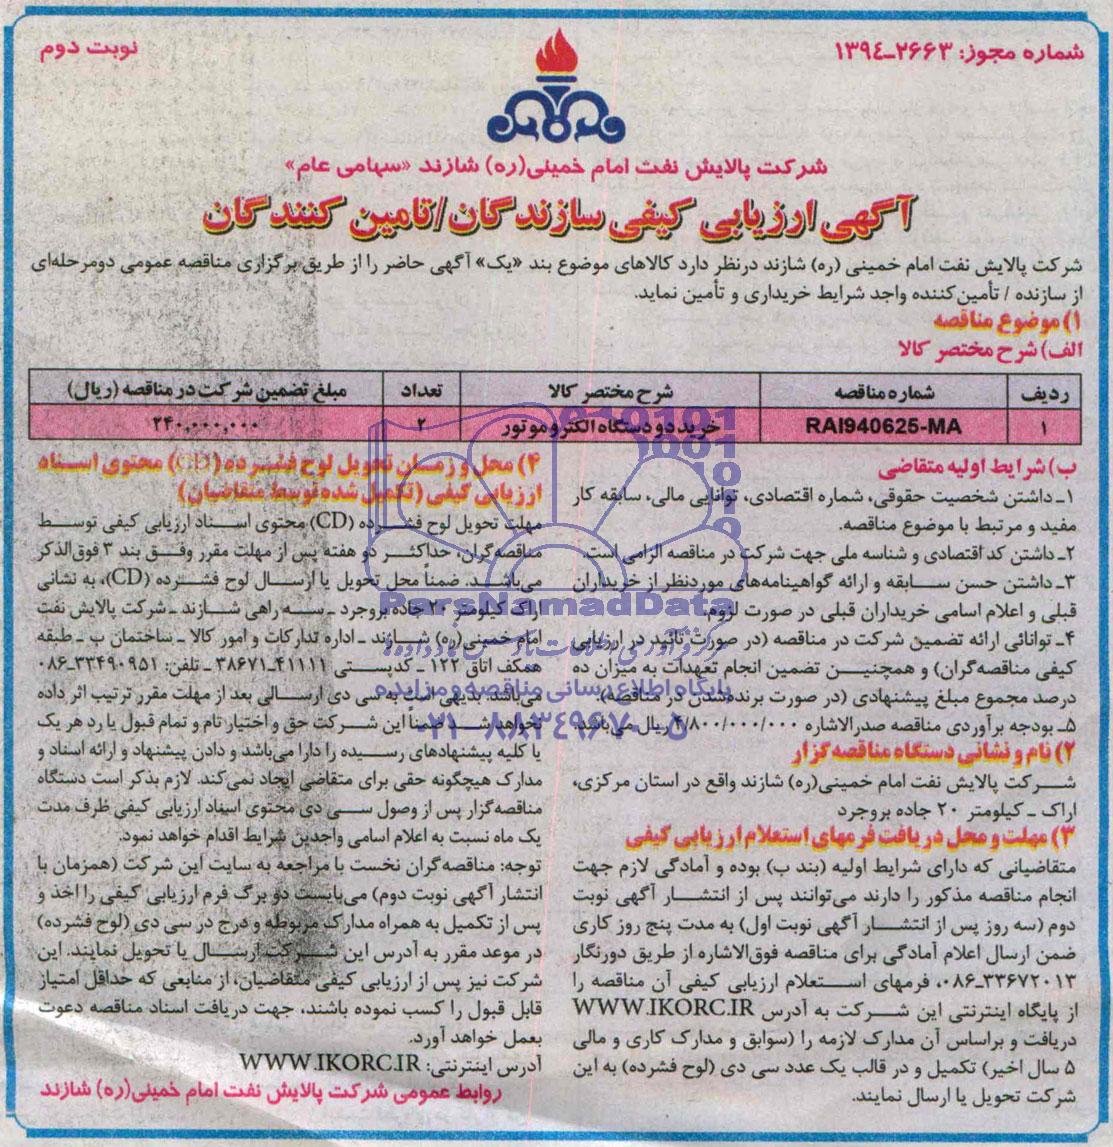 شماره مجوز: ۲۶۶۳-۱۳۹٤
نوبت دوم
شرکت پالایش نفت امام خمینی(ره) شازند «سهامی عام»
آگهی ارزیابی کیفی سازندگان/تامین کنندگان
شرکت پالایش نفت امام خمینی (ره) شازند درنظر دارد کالاهای موضوع بند «یک» آگهی حاضر را از طریق برگزاری مناقصه عمومی دومرحله‌ای
از سازنده / تأمین‌کننده واجد شرایط خریداری و تأمین نماید.
۱) موضوع مناقصه
الف) شرح مختصر کالا
ردیف شماره مناقصه شرح مختصر کالا تعداد مبلغ تضمین شرکت در مناقصه (ریال)
۱ RAI940625-MA خرید دو دستگاه الکتروموتور ۲ ۲۴۰,۰۰۰,۰۰۰
ب) شرایط اولیه متقاضی
۱ـ داشتن شخصیت حقوقی، شماره اقتصادی، توانایی مالی، سابقه کار
مفید و مرتبط با موضوع مناقصه.
۲ـ داشتن کد اقتصادی و شناسه ملی جهت شرکت در مناقصه الزامی است.
۳ـ داشتن حسن سابقه و ارائه گواهینامه‌های موردنظر از خریداران
قبلی و اعلام اسامی خریداران قبلی در صورت لزوم.
۴ـ توانائی ارائه تضمین شرکت در مناقصه (در صورت تائید در ارزیابی
کیفی مناقصه‌گران) و همچنین تضمین انجام تعهدات به میزان ده
درصد مجموع مبلغ پیشنهادی (در صورت برنده‌شدن در مناقصه)
۵ـ بودجه برآوردی مناقصه صدرالاشاره ۴/۸۰۰/۰۰۰/۰۰۰ ریال می‌باشد.
۲) نام و نشانی دستگاه مناقصه‌گزار
شرکت پالایش نفت امام خمینی(ره) شازند واقع در استان مرکزی،
اراک ـ کیلومتر ۲۰ جاده بروجرد
۳) مهلت و محل دریافت فرمهای استعلام ارزیابی کیفی
متقاضیانی که دارای شرایط اولیه (بند ب) بوده و آمادگی لازم جهت
انجام مناقصه مذکور را دارند می‌توانند پس از انتشار آگهی نوبت
دوم (سه روز پس از انتشار آگهی نوبت اول) به مدت پنج روز کاری
ضمن ارسال اعلام آمادگی برای مناقصه فوق‌الاشاره از طریق دورنگار
۳۳۶۷۲۰۱۳-۰۸۶، فرمهای استعلام ارزیابی کیفی آن مناقصه را
از پایگاه اینترنتی این شرکت به آدرس WWW.IKORC.IR
دریافت و براساس آن مدارک لازمه را (سوابق و مدارک کاری و مالی
۵ سال اخیر) تکمیل و در قالب یک عدد سی دی (لوح فشرده) به این
شرکت تحویل یا ارسال نمایند.
۴) محل و زمان تحویل لوح فشرده (CD) محتوی اسناد
ارزیابی کیفی (تکمیل شده توسط متقاضیان)
مهلت تحویل لوح فشرده (CD) محتوی اسناد ارزیابی کیفی توسط
مناقصه‌گران، حداکثر دو هفته پس از مهلت مقرر وفق بند ۳ فوق‌الذکر
می‌باشد. ضمناً محل تحویل یا ارسال لوح فشرده (CD)، به نشانی
اراک کیلومتر ۲۰ جاده بروجرد ـ سه راهی شازند ـ شرکت پالایش نفت
امام خمینی(ره) شازند ـ اداره تدارکات و امور کالا ـ ساختمان ب ـ طبقه
همکف اتاق ۱۲۲ ـ کدپستی ۴۱۱۱۱-۳۸۶۷۱ ـ تلفن: ۳۳۴۹۰۹۵۱-۰۸۶
می‌باشد. بدیهی است به سی دی ارسالی بعد از مهلت مقرر ترتیب اثر داده
نخواهد شد. ضمناً این شرکت حق و اختیار تام و تمام قبول یا رد هر یک
یا کلیه پیشنهادهای رسیده را دارا می‌باشد و دادن پیشنهاد و ارائه اسناد و
مدارک هیچگونه حقی برای متقاضی ایجاد نمی‌کند. لازم بذکر است دستگاه
مناقصه‌گزار پس از وصول سی دی محتوی اسناد ارزیابی کیفی ظرف مدت
یک ماه نسبت به اعلام اسامی واجدین شرایط اقدام خواهد نمود.
توجه: مناقصه‌گران نخست با مراجعه به سایت این شرکت (همزمان با
انتشار آگهی نوبت دوم) می‌بایست دو برگ فرم ارزیابی کیفی را اخذ و
پس از تکمیل به همراه مدارک مربوطه و درج در سی دی (لوح فشرده)
در موعد مقرر به آدرس این شرکت ارسال یا تحویل نمایند. این
شرکت نیز پس از ارزیابی کیفی متقاضیان، از منابعی که حداقل امتیاز
قابل قبول را کسب نموده باشند، جهت دریافت اسناد مناقصه دعوت
بعمل خواهد آورد.
آدرس اینترنتی: WWW.IKORC.IR
روابط عمومی شرکت پالایش نفت امام خمینی(ره) شازند
ParsNamadData
پایگاه اطلاع رسانی مناقصه و مزایده
۰۲۱-۸۸۳۴۹۶۷۰-۵